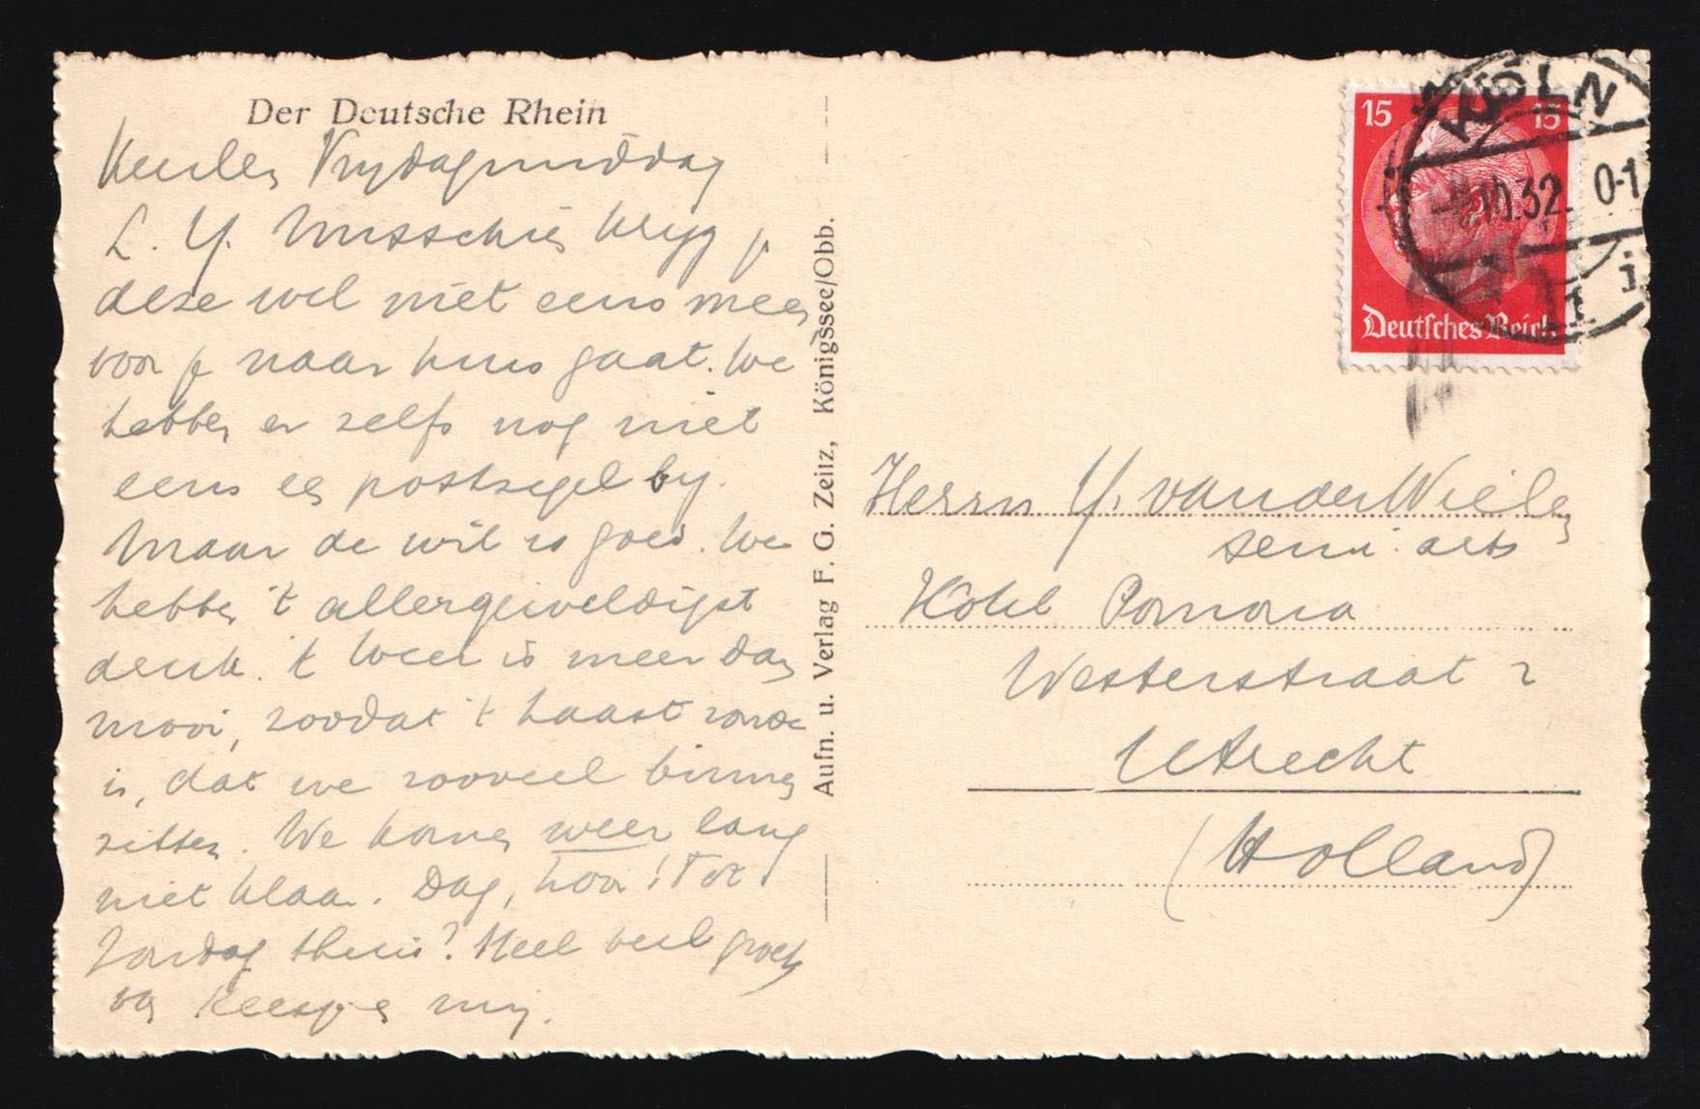 Der Deutsche Rhein
Keulen, Vrydagmiddag
L. Y. Misschien kryg je
deze wel niet eens meer
voor je naar huis gaat. We
hebben er zelfs nog niet
eens een postzegel by.
Maar de wil is goed. We
hebben 't allergeweldigst
leuk. 't Weer is meer dan
mooi, zoodat 't haast zonde
is, dat we zooveel binnen
zitten. We komen weer lang
niet klaar. Dag, hoor! Tot
Zondag thuis? Heel veel groeten
van Keesje en my.
Aufn. u. Verlag F. G. Zeitz, Königssee/Obb.
15 15
Deutsches Reich
KÖLN
10.32. 0-1
Herrn Y. van der Wielen
semi-arts
Hotel Pomona
Westerstraat 2
Utrecht
(Holland)